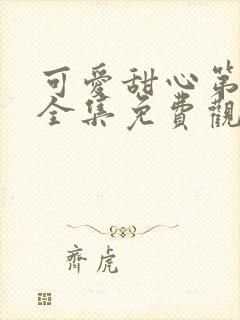 可愛甜心第
全集免費觀
齊虎